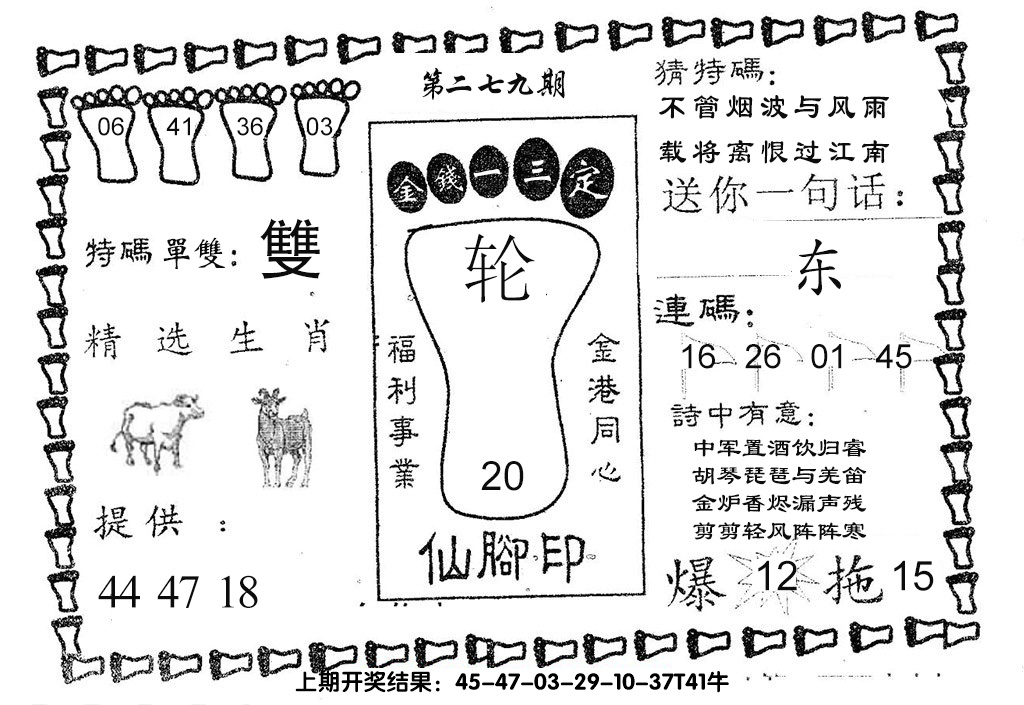 第二七九期
06 41 36 03
特碼單雙：雙
精选生肖
提供：
44 47 18
金錢一三定
轮
20
福利事業
金港同心
仙腳印
猜特碼：
不管烟波与风雨
载将离恨过江南
送你一句话：
东
連碼：
16 26 01 45
詩中有意：
中军置酒饮归睿
胡琴琵琶与羌笛
金炉香烬漏声残
剪剪轻风阵阵寒
爆 12 拖 15
上期开奖结果：45-47-03-29-10-37T41牛